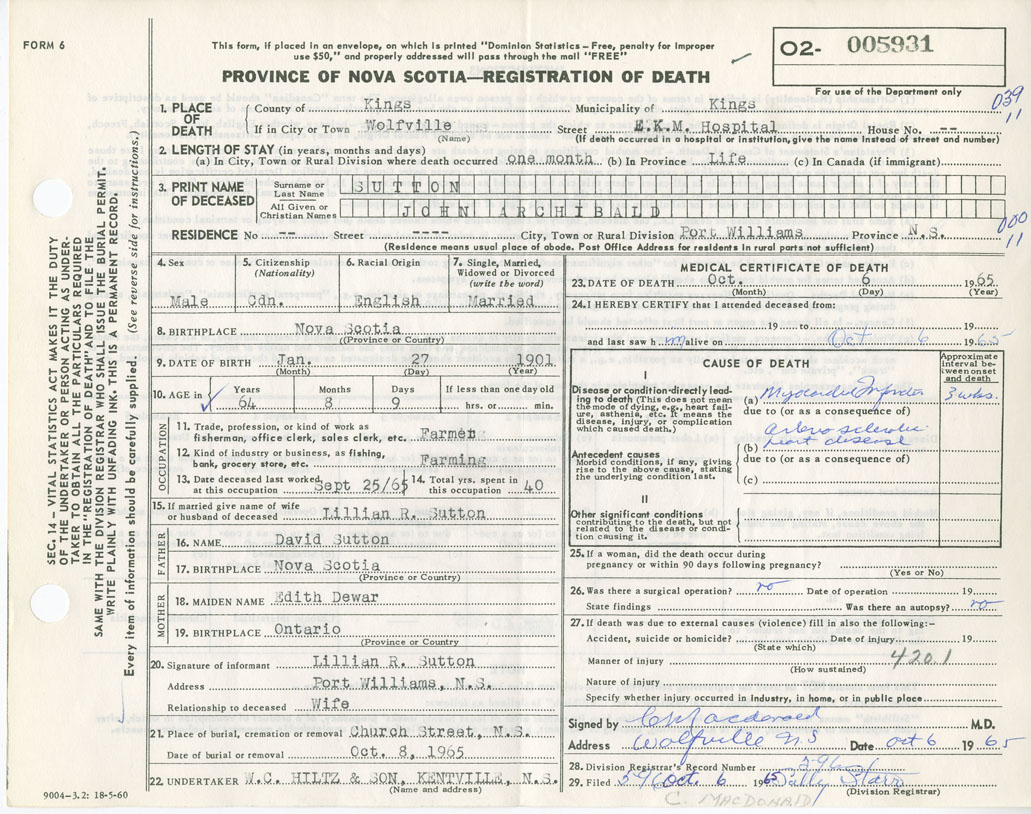 FORM 6
This form, if placed in an envelope, on which is printed "Dominion Statistics – Free, penalty for improper
use $50," and properly addressed will pass through the mail "FREE"
02- 005931
For use of the Department only
PROVINCE OF NOVA SCOTIA—REGISTRATION OF DEATH
039
11
1. PLACE OF DEATH County of Kings Municipality of Kings
If in City or Town Wolfville Street E.K.M. Hospital House No. --
(Name) (If death occurred in a hospital or institution, give the name instead of street and number)
2. LENGTH OF STAY (in years, months and days)
(a) In City, Town or Rural Division where death occurred one month (b) In Province Life (c) In Canada (if immigrant)
3. PRINT NAME OF DECEASED Surname or Last Name SUTTON
All Given or Christian Names JOHN ARCHIBALD
000
11
RESIDENCE No -- Street ---- City, Town or Rural Division Port Williams Province N.S.
(Residence means usual place of abode. Post Office Address for residents in rural parts not sufficient)
4. Sex
Male
5. Citizenship
(Nationality)
Cdn.
6. Racial Origin
English
7. Single, Married,
Widowed or Divorced
(write the word)
Married
8. BIRTHPLACE Nova Scotia
(Province or Country)
9. DATE OF BIRTH Jan. 27 1901
(Month) (Day) (Year)
10. AGE in Years Months Days If less than one day old
64 8 9 hrs. or min.
OCCUPATION
11. Trade, profession, or kind of work as
fisherman, office clerk, sales clerk, etc. Farmer
12. Kind of industry or business, as fishing,
bank, grocery store, etc. Farming
13. Date deceased last worked at this occupation Sept 25/65 14. Total yrs. spent in this occupation 40
15. If married give name of wife
or husband of deceased Lillian R. Sutton
FATHER
16. NAME David Sutton
17. BIRTHPLACE Nova Scotia
(Province or Country)
MOTHER
18. MAIDEN NAME Edith Dewar
19. BIRTHPLACE Ontario
(Province or Country)
20. Signature of informant Lillian R. Sutton
Address Port Williams, N.S.
Relationship to deceased Wife
21. Place of burial, cremation or removal Church Street, N.S.
Date of burial or removal Oct. 8, 1965
22. UNDERTAKER W.C. HILTZ & SON, KENTVILLE, N.S.
(Name and address)
MEDICAL CERTIFICATE OF DEATH
23. DATE OF DEATH Oct. 6 1965
(Month) (Day) (Year)
24. I HEREBY CERTIFY that I attended deceased from:
19 to 19
and last saw h m alive on Oct 6 1965
CAUSE OF DEATH
Approximate interval between onset and death
I
Disease or condition directly leading to death (This does not mean the mode of dying, e.g., heart failure, asthenia, etc. It means the disease, injury, or complication which caused death.)
(a) Myocardial Infarction 3 wks.
due to (or as a consequence of)
arterio sclerotic
(b) heart disease
Antecedent causes
Morbid conditions, if any, giving rise to the above cause, stating the underlying condition last.
due to (or as a consequence of)
(c)
II
Other significant conditions
contributing to the death, but not related to the disease or condition causing it.
25. If a woman, did the death occur during
pregnancy or within 90 days following pregnancy?
(Yes or No)
26. Was there a surgical operation? no Date of operation 19
State findings Was there an autopsy? no
27. If death was due to external causes (violence) fill in also the following:–
Accident, suicide or homicide? Date of injury 19
(State which)
Manner of injury 420.1
(How sustained)
Nature of injury
Specify whether injury occurred in industry, in home, or in public place
Signed by C Macdonald M.D.
Address Wolfville NS Date Oct 6 1965
28. Division Registrar's Record Number
29. Filed Oct 6 1965 Sally Starr
(Division Registrar)
C. MACDONALD
SEC. 14 – VITAL STATISTICS ACT MAKES IT THE DUTY
OF THE UNDERTAKER OR PERSON ACTING AS UNDER-
TAKER TO OBTAIN ALL THE PARTICULARS REQUIRED
IN THE "REGISTRATION OF DEATH" AND TO FILE THE
SAME WITH THE DIVISION REGISTRAR WHO SHALL ISSUE THE BURIAL PERMIT.
WRITE PLAINLY WITH UNFADING INK. THIS IS A PERMANENT RECORD.
Every item of information should be carefully supplied. (See reverse side for instructions.)
9004-3.2: 18-5-60